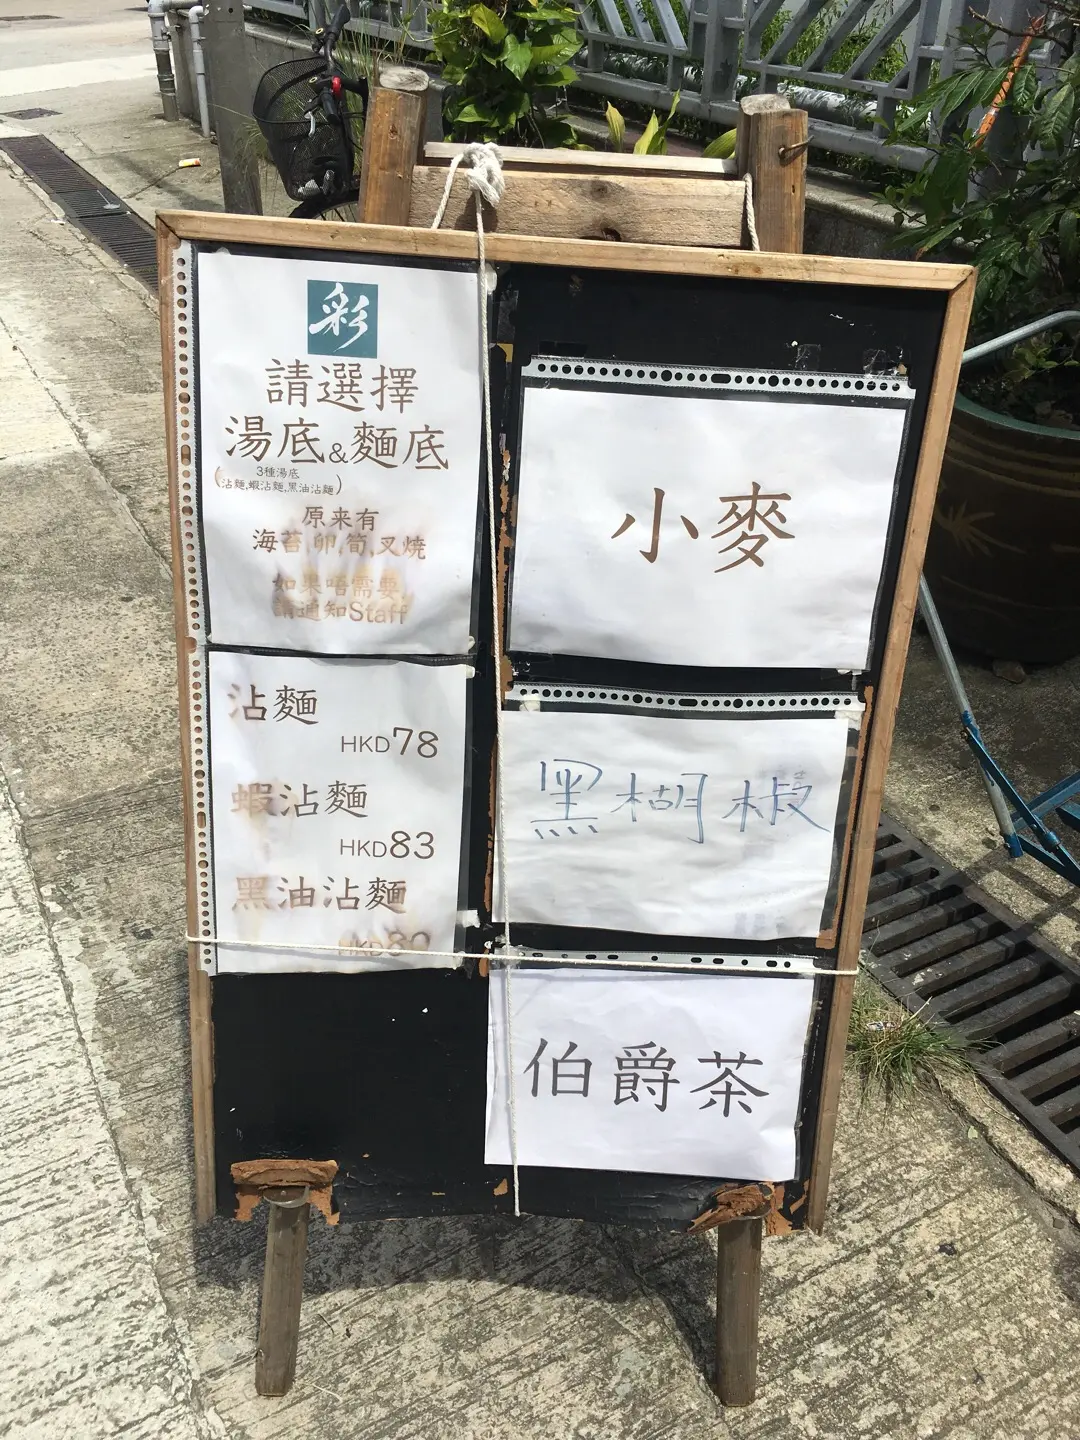 彩
請選擇
湯底&麵底
3種湯底
(沾麵,蝦沾麵,黑油沾麵)
原来有
海苔,卵,筍,叉燒
如果唔需要,
請通知Staff
沾麵
HKD78
蝦沾麵
HKD83
黑油沾麵
HKD80
小麥
黑胡椒
伯爵茶